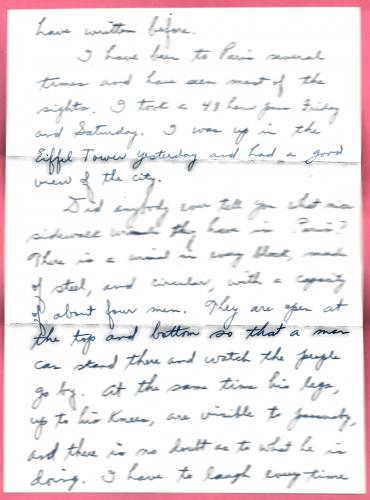 have written before.
I have been to Paris several
times and have seen most of the
sights. I took a 48 hour pass Friday
and Saturday. I was up in the
Eiffel Tower yesterday and had a good
view of the city.
Did anybody ever tell you what nice
sidewalk urinals they have in Paris?
There is a urinal in every block, made
of steel, and circular, with a capacity
of about four men. They are open at
the top and bottom so that a man
can stand there and watch the people
go by. At the same time his legs,
up to his knees, are visible to passersby,
and there is no doubt as to what he is
doing. I have to laugh every time